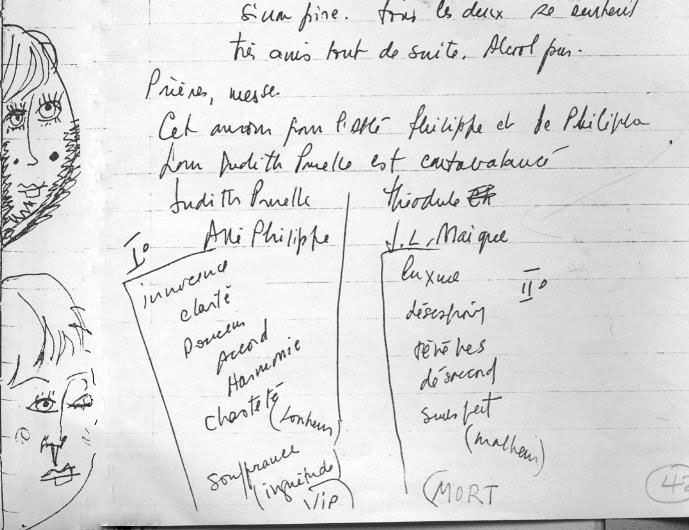 tous les deux se sentent
très amis tout de suite. Alcool pur.
Prières, messe
Cet amour pour l'Abbé Philippe et de Philippe
pour Judith Prunelle est contrebalancé
Judith Prunelle
Théodule
Abbé Philippe
J. L. Maigue
I°
innocence
clarté
Douceur
Accord
Harmonie
Chasteté
(bonheur)
Souffrance
(inquiétude)
Vie
II°
luxure
désespoir
ténèbres
désaccord
(malheur)
(MORT
42